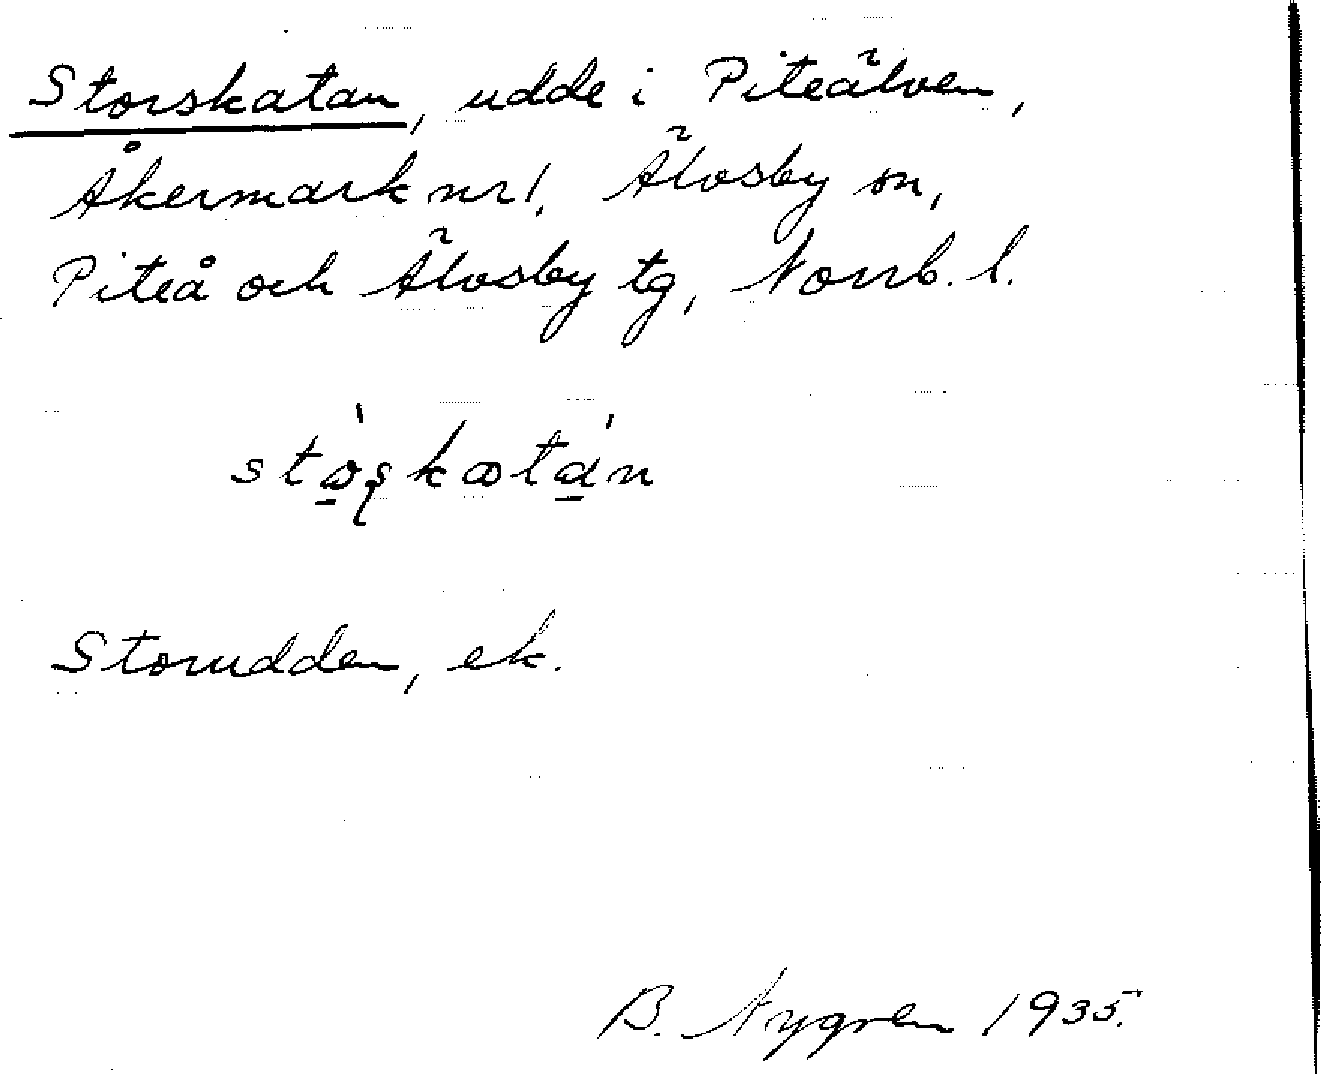 Storskatan, udde i Piteälven,
Åkermark nr 1, Älvsby sn,
Piteå och Älvsby tg, Norrb. l.
Storudden, ek.
B. Nygren 1935.